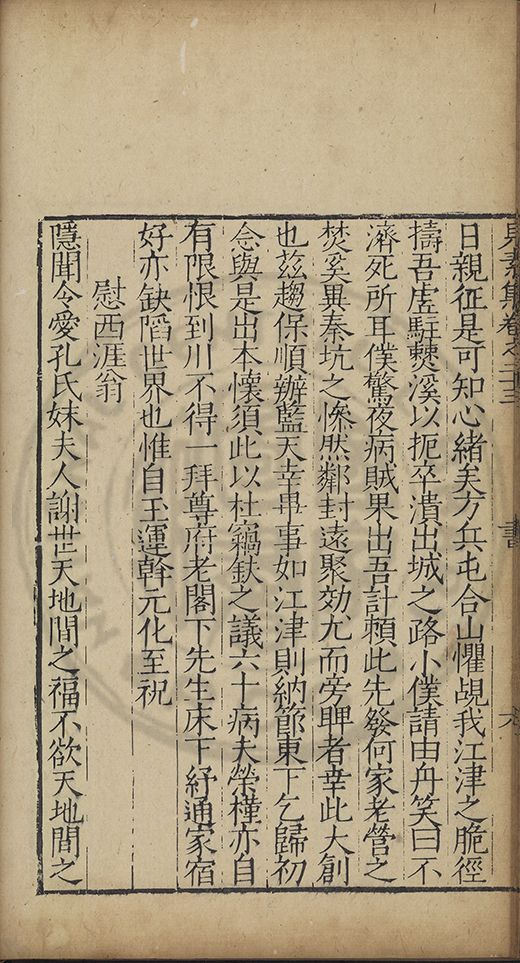 見素集卷之二十三 書 六
日親征是可知心緒矣方兵屯合山懼覘我江津之脆徑
擣吾虛駐䥶溪以扼卒潰出城之路小僕請由舟笑曰不
濟死所耳僕驚夜病賊果出吾計賴此先發何家老營之
焚奚異秦坑之慘然鄰封遠聚効尤而旁睥者幸此大創
也茲趨保順辦藍天幸畢事如江津則納節東下乞歸初
念與是出本懷須此以杜竊鈇之議六十病夫榮槿亦自
有限恨到川不得一拜尊府老閣下先生床下紓通家宿
好亦缺䧟世界也惟自玉運幹元化至祝
慰西涯翁
隱聞令愛孔氏妹夫人謝世天地間之福不欲天地間之